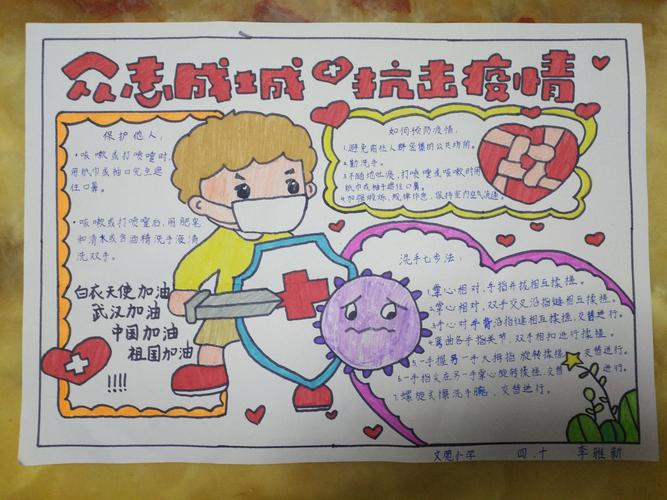 众志成城 抗击疫情
保护他人：
·咳嗽或打喷嚏时，
用纸巾或袖口完全遮
住口鼻。
·咳嗽或打喷嚏后，用肥皂
和清水或含酒精洗手液清
洗双手。
白衣天使加油
武汉加油
中国加油
祖国加油
!!!!
如何预防疫情：
1.避免前往人群密集的公共场所。
2.勤洗手。
3.不随地吐痰，打喷嚏或咳嗽时用
纸巾或袖子遮住口鼻。
4.加强锻炼，规律作息，保持室内空气流通。
洗手七步法：
1.掌心相对，手指并拢相互揉搓。
2.掌心相对，双手交叉沿指缝相互揉搓。
3.手心对手背沿指缝相互揉搓，交替进行。
4.弯曲各手指关节，双手相扣进行揉搓。
5.一手握另一手大拇指旋转揉搓，交替进行。
6.一手指尖在另一手掌心旋转揉搓，交替进行。
7.螺旋式擦洗手腕，交替进行。
文苑小学 四.十 李雅新